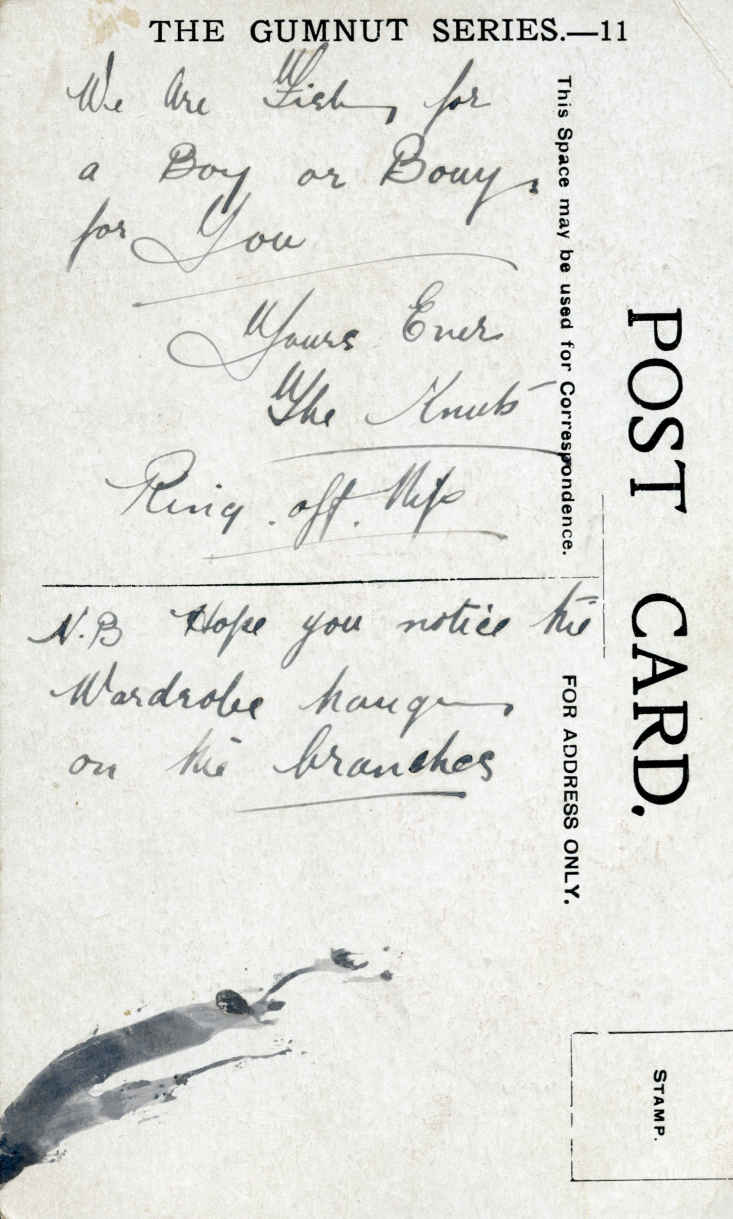 THE GUMNUT SERIES.—11
We are Fishing for
a Boy or Bouy.
for You
Yours Ever
The Knuts
Ring. off.
N.B Hope you notice the
Wardrobe hanging
on the branches
This Space may be used for Correspondence.
POST CARD.
FOR ADDRESS ONLY.
STAMP.